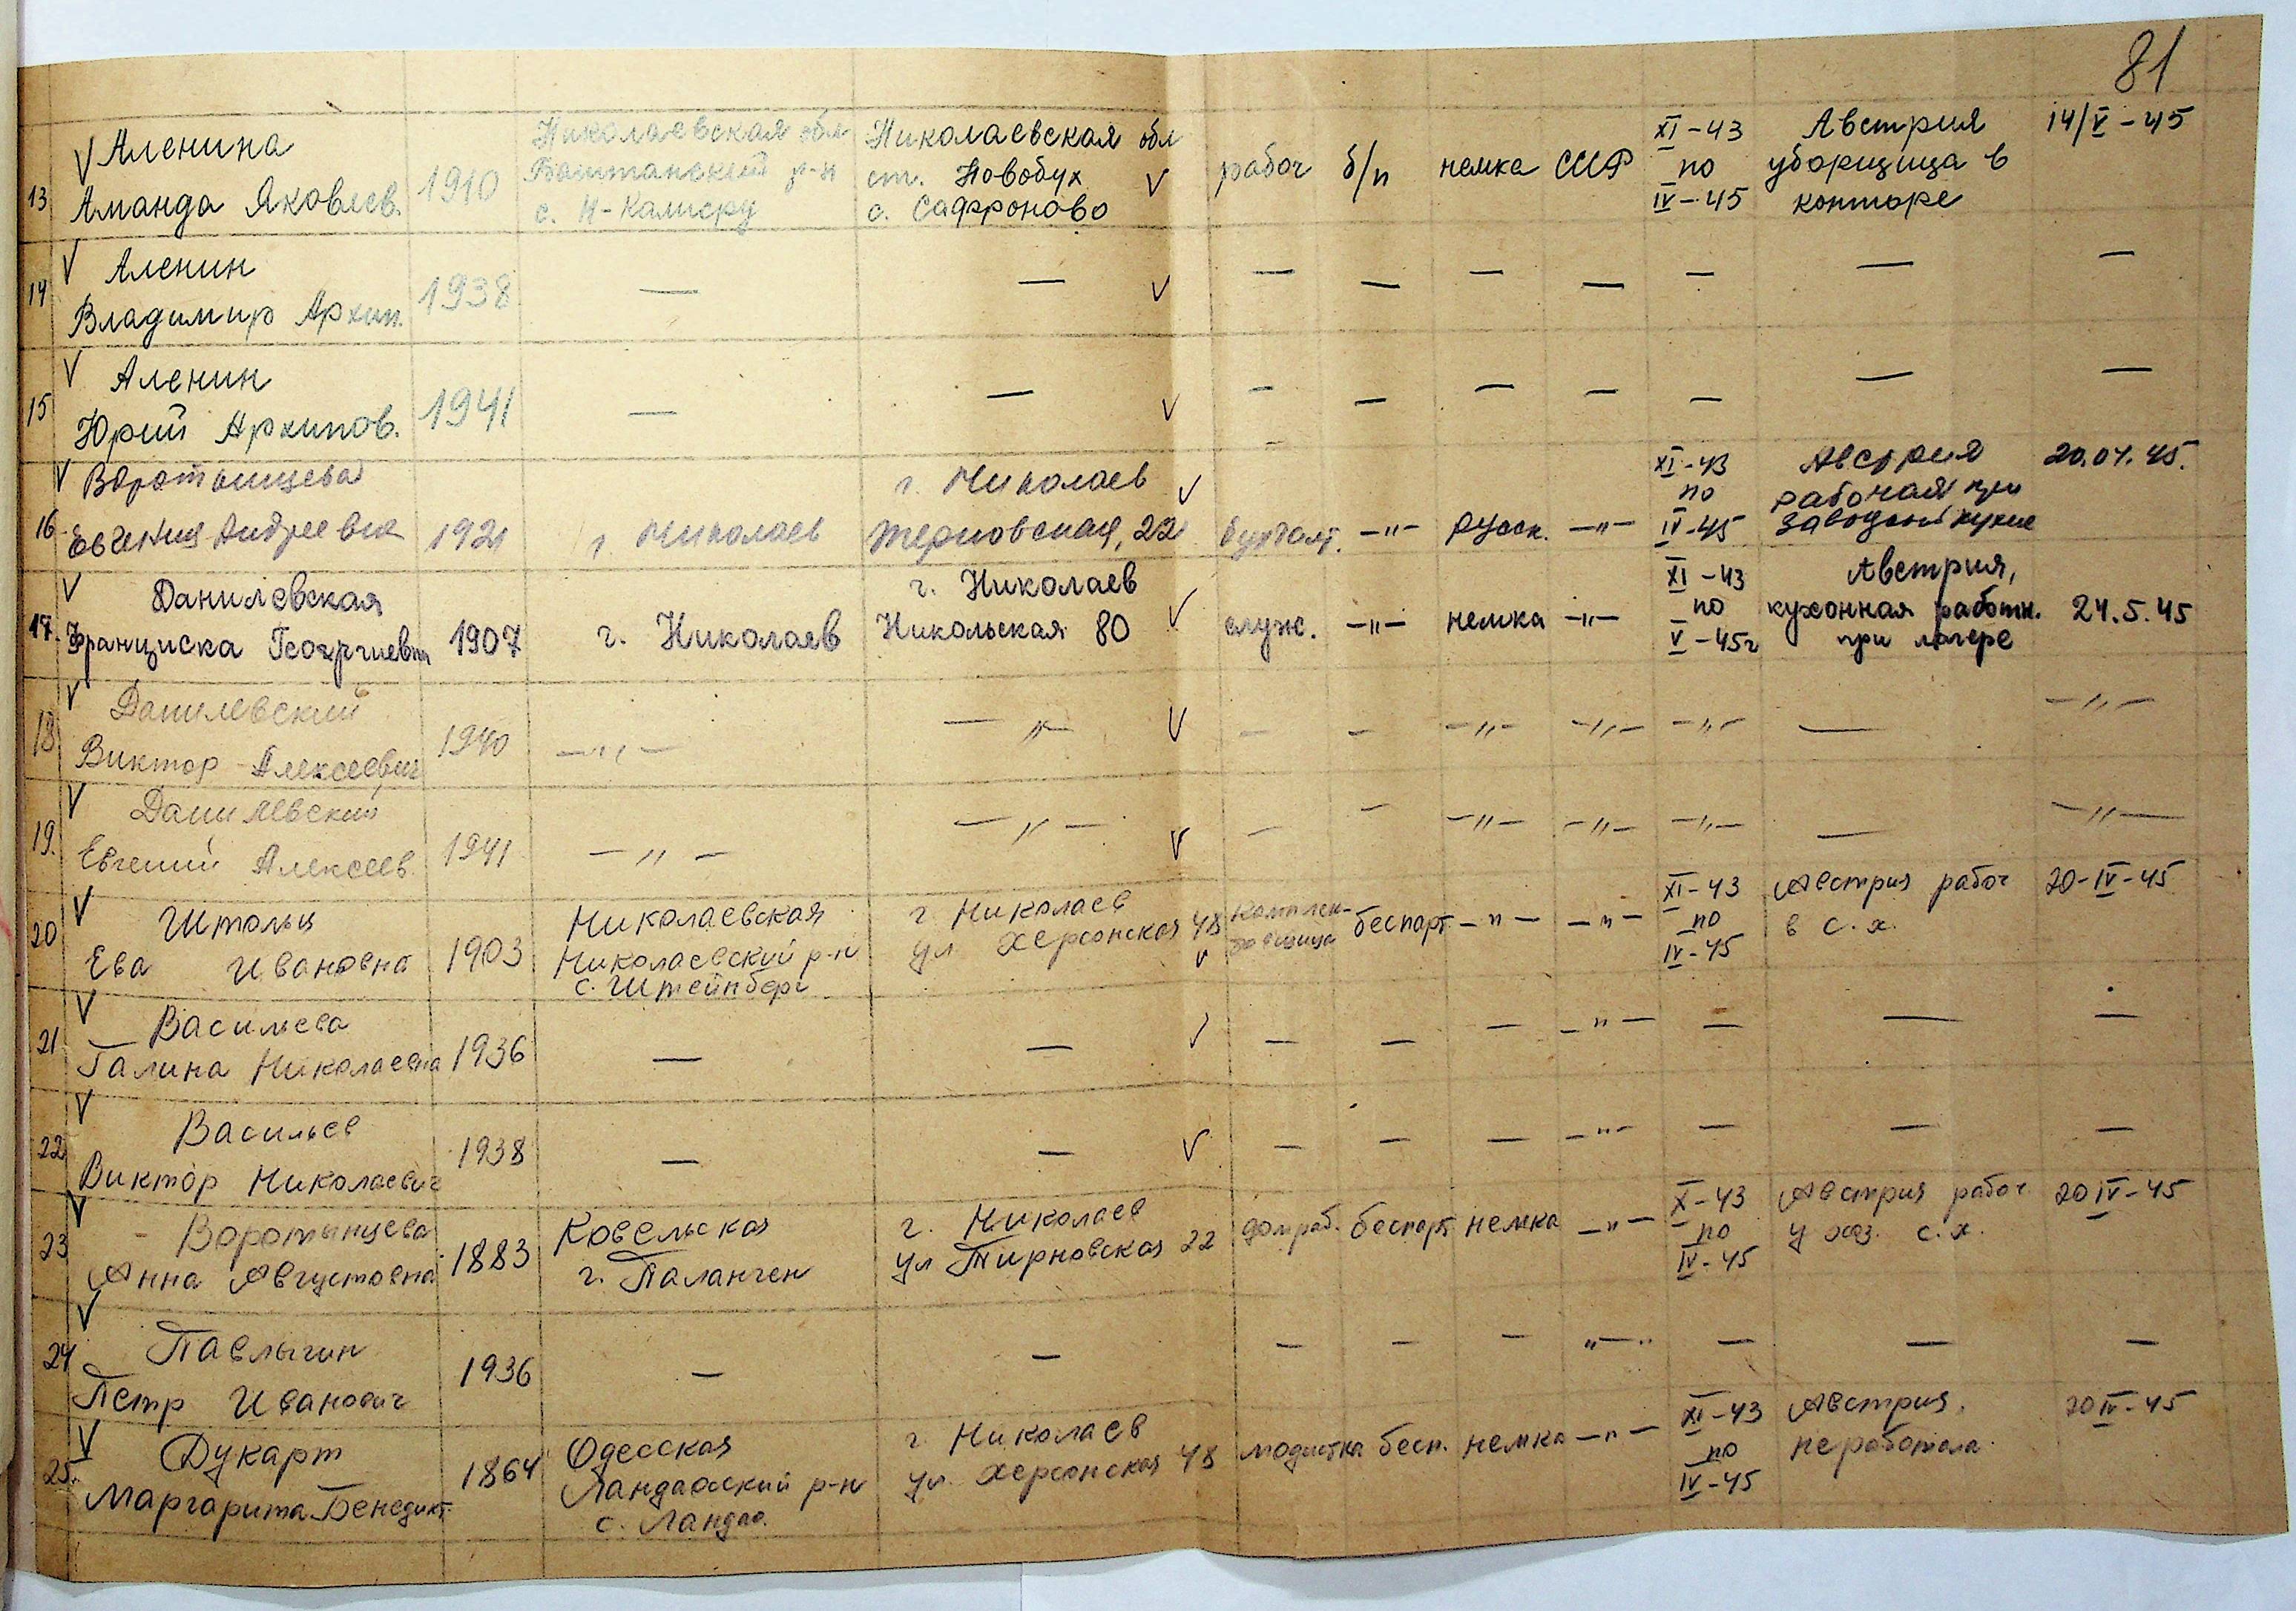 81
13 √ Аленина Аманда Яковлев. 1910 Николаевская обл Баштанский р-н с. Н- Николаевская обл ст. Новобух с. Сафроново √ рабоч б/п немка СССР XI-43 по IV-45 Австрия уборщица в конторе 14/V-45
14 √ Аленин Владимир Архип. 1938 — — √ — — — — — — —
15 √ Аленин Юрий Архипов. 1941 — — √ — — — — — — —
16 √ Воротынцева Евгения Андреевна 1921 г. Николаев г. Николаев Терновская, 22 √ бухгалт. —"— русск. —"— XI-43 по IV-45 Австрия рабочая при заводской кухне 20.04.45.
17. √ Данилевская Франциска Георгиевна 1907 г. Николаев г. Николаев Никольская 80 √ служ. —"— немка —"— XI-43 по V-45г Австрия, кухонная работн. при лагере 24.5.45
18 √ Данилевский Виктор Алексеевич 1940 —"— —"— √ — — —"— —"— —"— — —"—
19. √ Данилевский Евгений Алексеев. 1941 —"— —"— √ — — —"— —"— —"— — —"—
20 √ Штольц Ева Ивановна 1903 Николаевская Николаевский р-н с. Штейнберг г. Николаев ул Херсонская 48 √ беспарт —"— —"— XI-43 по IV-45 Австрия рабоч в с.х. 20-IV-45
21 √ Васильева Галина Николаевна 1936 — — √ — — — —"— — — —
22 √ Васильев Виктор Николаевич 1938 — — √ — — — —"— — — —
23 √ Воротынцева Анна Августовна 1883 Ковельская г. Паланген г. Николаев ул Тирновская 22 домраб. беспарт немка —"— X-43 по IV-45 Австрия рабоч у хоз. с.х. 20 IV-45
24 √ Павлыгин Петр Иванович 1936 — — — — — "—" — — —
25. √ Дукарт Маргарита Бенедикт. 1864 Одесская Ландаоский р-н с. Ландао. г. Николаев ул. Херсонская 48 модистка бесп. немка —"— XI-43 по IV-45 Австрия, не работала. 20 IV-45